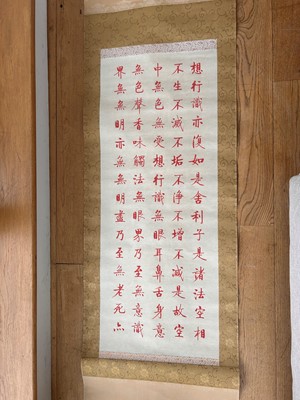 想行識亦復如是舍利子是諸法空相
不生不滅不垢不淨不增不減是故空
中無色無受想行識無眼耳鼻舌身意
無色聲香味觸法無眼界乃至無意識
界無無明亦無無明盡乃至無老死亦